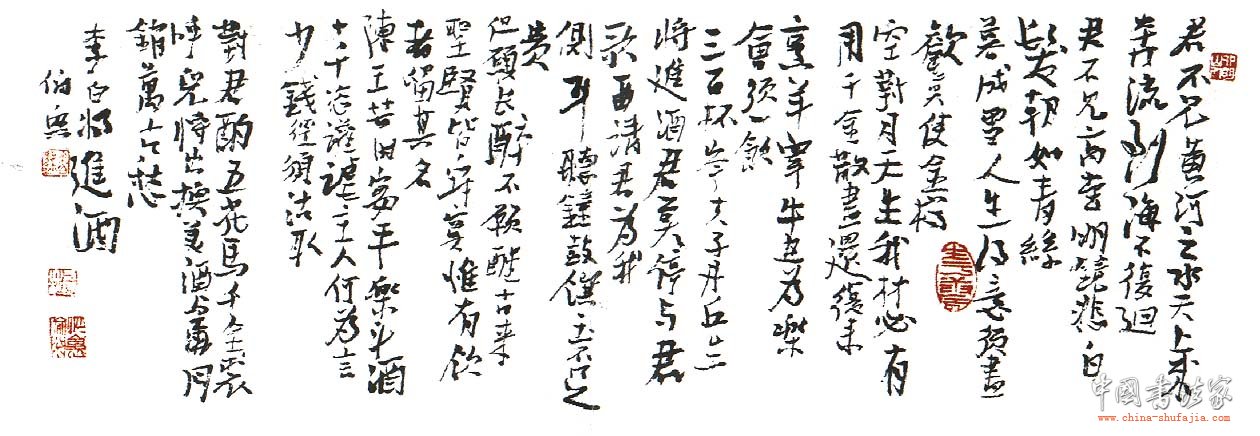 君不見黃河之水天上來
奔流到海不復迴
君不見高堂明鏡悲白
髮朝如青絲
暮成雪人生得意須盡
歡莫使金樽
空對月天生我材必有
用千金散盡還復來
烹羊宰牛且為樂
會須一飲
三百杯岑夫子丹丘生
將進酒君莫停與君
歌一曲請君為我
側耳聽鐘鼓饌玉不足
貴
但願長醉不願醒古來
聖賢皆寂寞惟有飲
者留其名
陳王昔時宴平樂斗酒
十千恣讙謔主人何為言
少錢徑須沽取
對君酌五花馬千金裘
呼兒將出換美酒與爾同
銷萬古愁
李白將進酒
中國书法家
www.china-shufajia.com